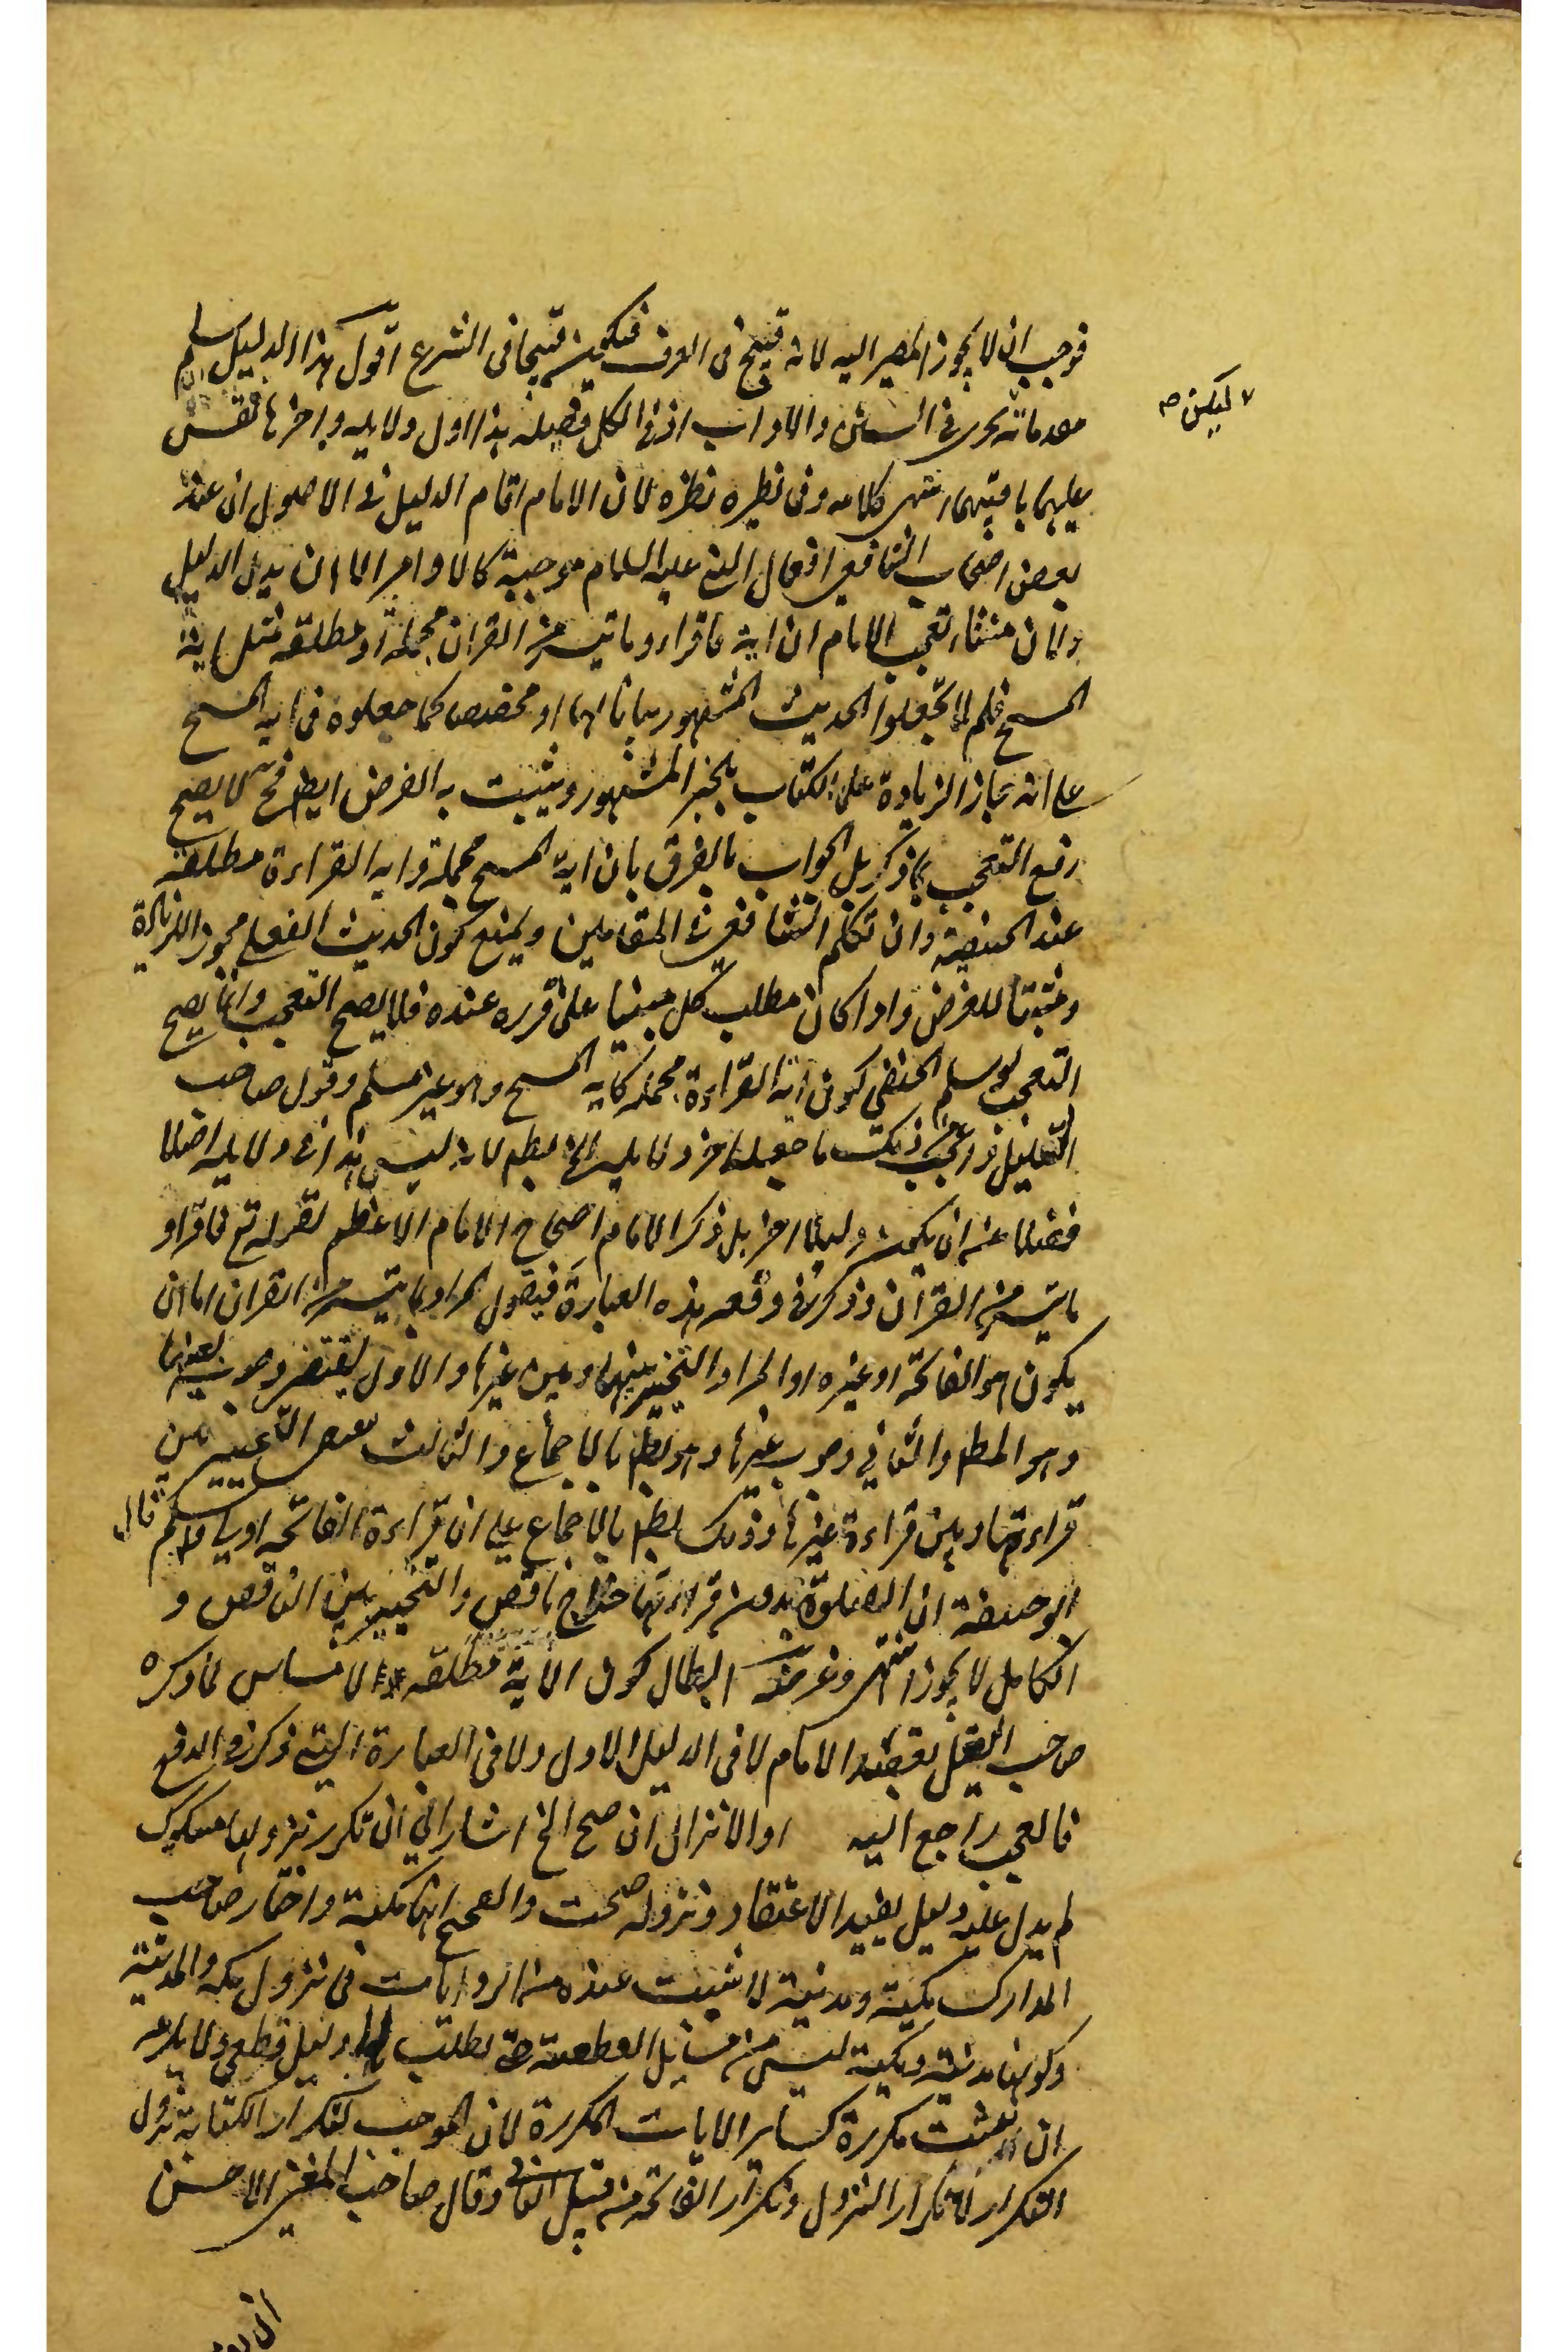 فوجب ان لا يجوز المصير اليه لانه قبيح فى العرف فيكون قبيحا فى الشرع اقول هذا الدليل ان سلم
مقدماته يجرى فى السنن والاداب اذ فى الكل فضيلة هذا اول دلايله واخرها فقس
ليكن صح
عليهما باقيتهما انتهى كلامه وفى نظيره نظر لان الامام اقام الدليل فى الاصول ان عند
بعض اصحاب الشافعى افعال النبى عليه السلام موجبة كالاوامر الا ان يدل الدليل
ولان منشاء تعجب الامام ان اية فاقرءوا ما تيسر من القران مجملة او مطلقة مثل اية
المسح فلم لا تجعلوا الحديث المشهور بيانا لها او مخصصا كما جعلوه فى اية المسح
على انه جاز الزيادة على الكتاب بالخبر المشهور ويثبت به الفرض ايضا فح لا يصح
رفع التعجب بما ذكر بل الجواب بالفرق بان اية المسح مجملة واية القراءة مطلقة
عند الحنفية وان تكلم الشافعى فى المقامين ويمنع كون الحديث الفعلى مجوز الزيادة
ومثبتا للفرض واذا كان مطلب كل مبنيا على ما قرره عنده فلا يصح التعجب وانما يصح
التعجب لو سلم الحنفى كون اية القراءة مجملة كاية المسح وهو غير مسلم وقول صاحب
التعليل واعجب من ذلك ما جعله اخر دلايله الخ بط لانه ليس هذا فى دلايله اصلا
فضلا عن ان يكون دليلا اخر بل ذكر الامام احتجاج الامام الاعظم لقوله تع فاقرءوا
ما تيسر من القران وذكر فى دفعه هذه العبارة فيقول المراد بما تيسر من القران اما ان
يكون هو الفاتحة او غيره او المراد التخيير بينها وبين غيرها والاول يقتضى وجوبها بعينها
وهو المط والثانى وجوب غيرها وهو بط بالاجماع والثالث يقتضى التخيير بين
قراءتها وبين قراءة غيرها وذلك بط بالاجماع على ان قراءة الفاتحة اولى وسلم قال
ابو حنيفة ان الصلوة بدون قراءتها خداج ناقص والتخيير بين الناقص و
الكامل لا يجوز انتهى وغرضه ابطال كون الاية مطلقة لا مساس لما ذكره
صاحب التعليل بمقصد الامام لا فى الدليل الاول ولا فى العبارة التى ذكر فى الدفع
فالعجب راجع اليه او الانزال ان صح الخ اشار الى ان تكرر نزولها مشكوك
لم يدل عليه دليل يفيد الاعتقاد ونزوله صحت والصحيح انها مكية واختار صاحب
المدارك مكية ومدنية لما ثبت عنده من الروايات فى نزول مكة والمدينة
وكونها مدنية ومكية ليس من مسايل القطعية حتى يطلب لها دليل قطعى ولا يلزم
ان ثبتت مكررة كساير الايات المكررة لان الموجب لتكرار الكتابة نزول
التكرار لا تكرار النزول وتكرار الفاتحة من قبيل الثانى وقال صاحب المغنى الاحسن